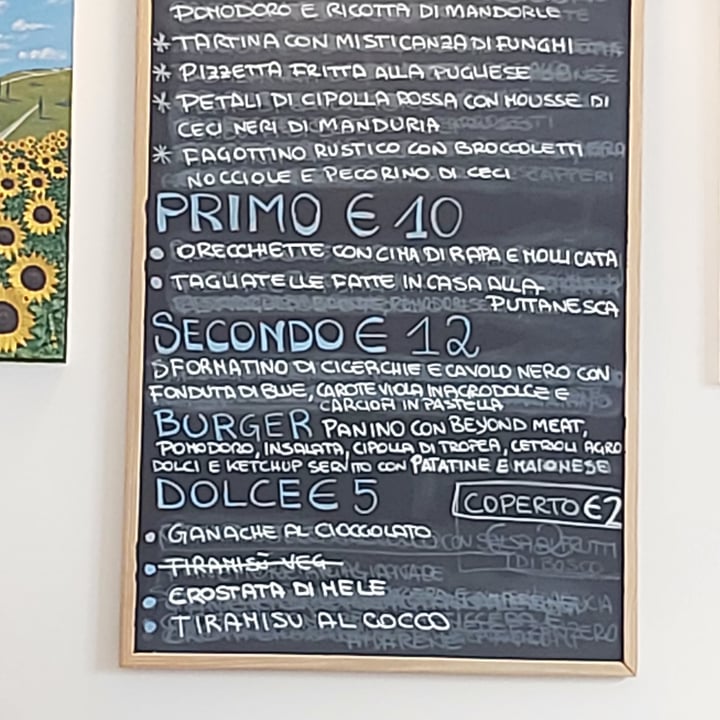 POMODORO E RICOTTA DI MANDORLE
* TARTINA CON MISTICANZA DI FUNGHI
* PIZZETTA FRITTA ALLA PUGLIESE
* PETALI DI CIPOLLA ROSSA CON MOUSSE DI
CECI NERI DI MANDURIA
* FAGOTTINO RUSTICO CON BROCCOLETTI
NOCCIOLE E PECORINO DI CECI
PRIMO € 10
• ORECCHIETTE CON CIMA DI RAPA E MOLLICATA
• TAGLIATELLE FATTE IN CASA ALLA
PUTTANESCA
SECONDO € 12
SFORMATINO DI CICERCHIE E CAVOLO NERO CON
FONDUTA DI BLUE, CAROTE VIOLA IN AGRODOLCE E
CARCIOFI IN PASTELLA
BURGER PANINO CON BEYOND MEAT,
POMODORO, INSALATA, CIPOLLA DI TROPEA, CETRIOLI AGRO
DOLCI E KETCHUP SERVITO CON PATATINE E MAIONESE
DOLCE € 5
COPERTO €2
• GANACHE AL CIOCCOLATO
• TIRAMISÙ VEG
• CROSTATA DI MELE
• TIRAMISU AL COCCO